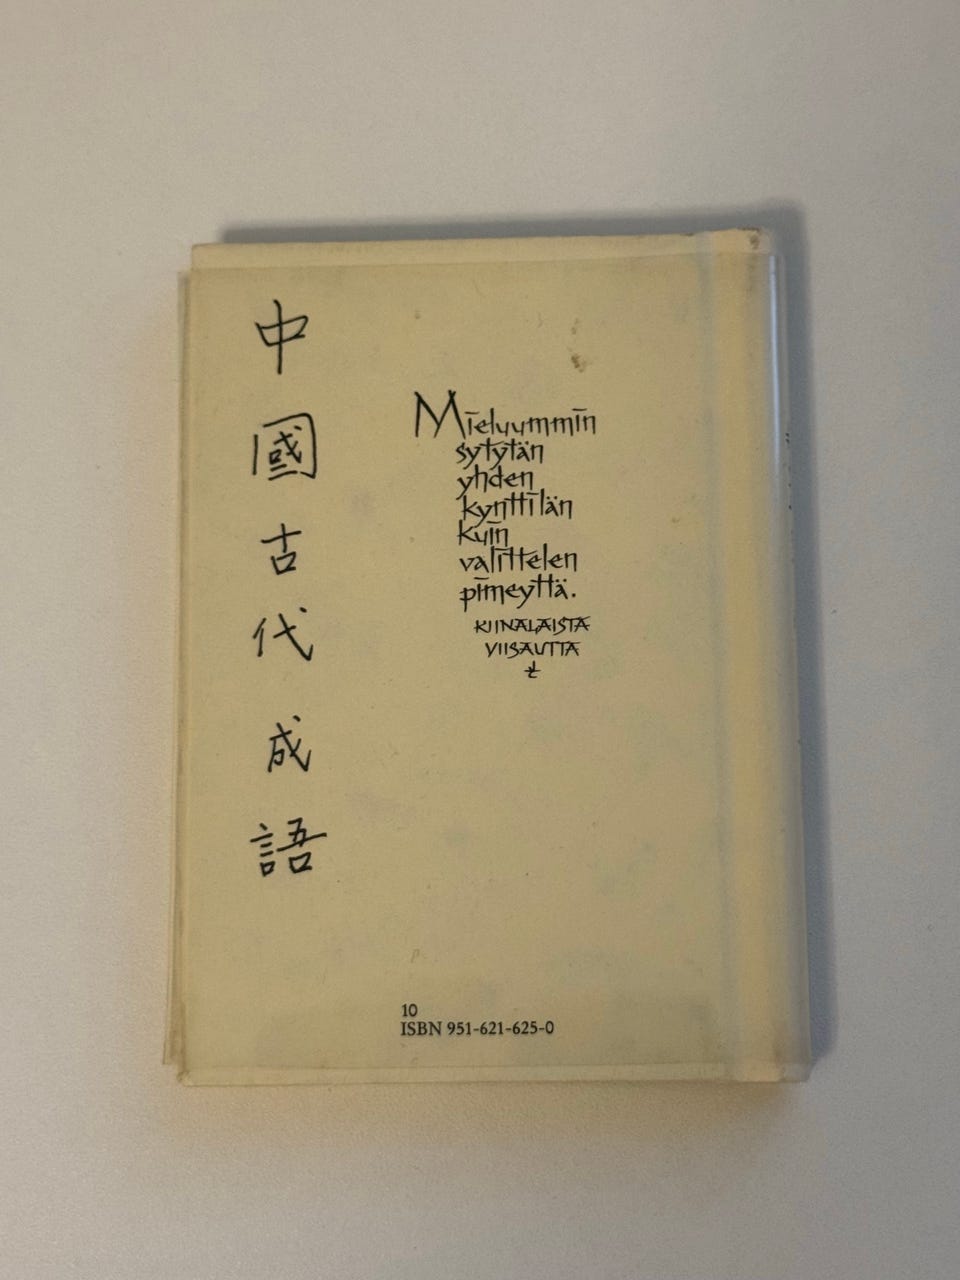 中國古代成語
Mieluummin
sytytän
yhden
kynttilän
kuin
valittelen
pimeyttä.
KIINALAISTA
VIISAUTTA
10
ISBN 951-621-625-0